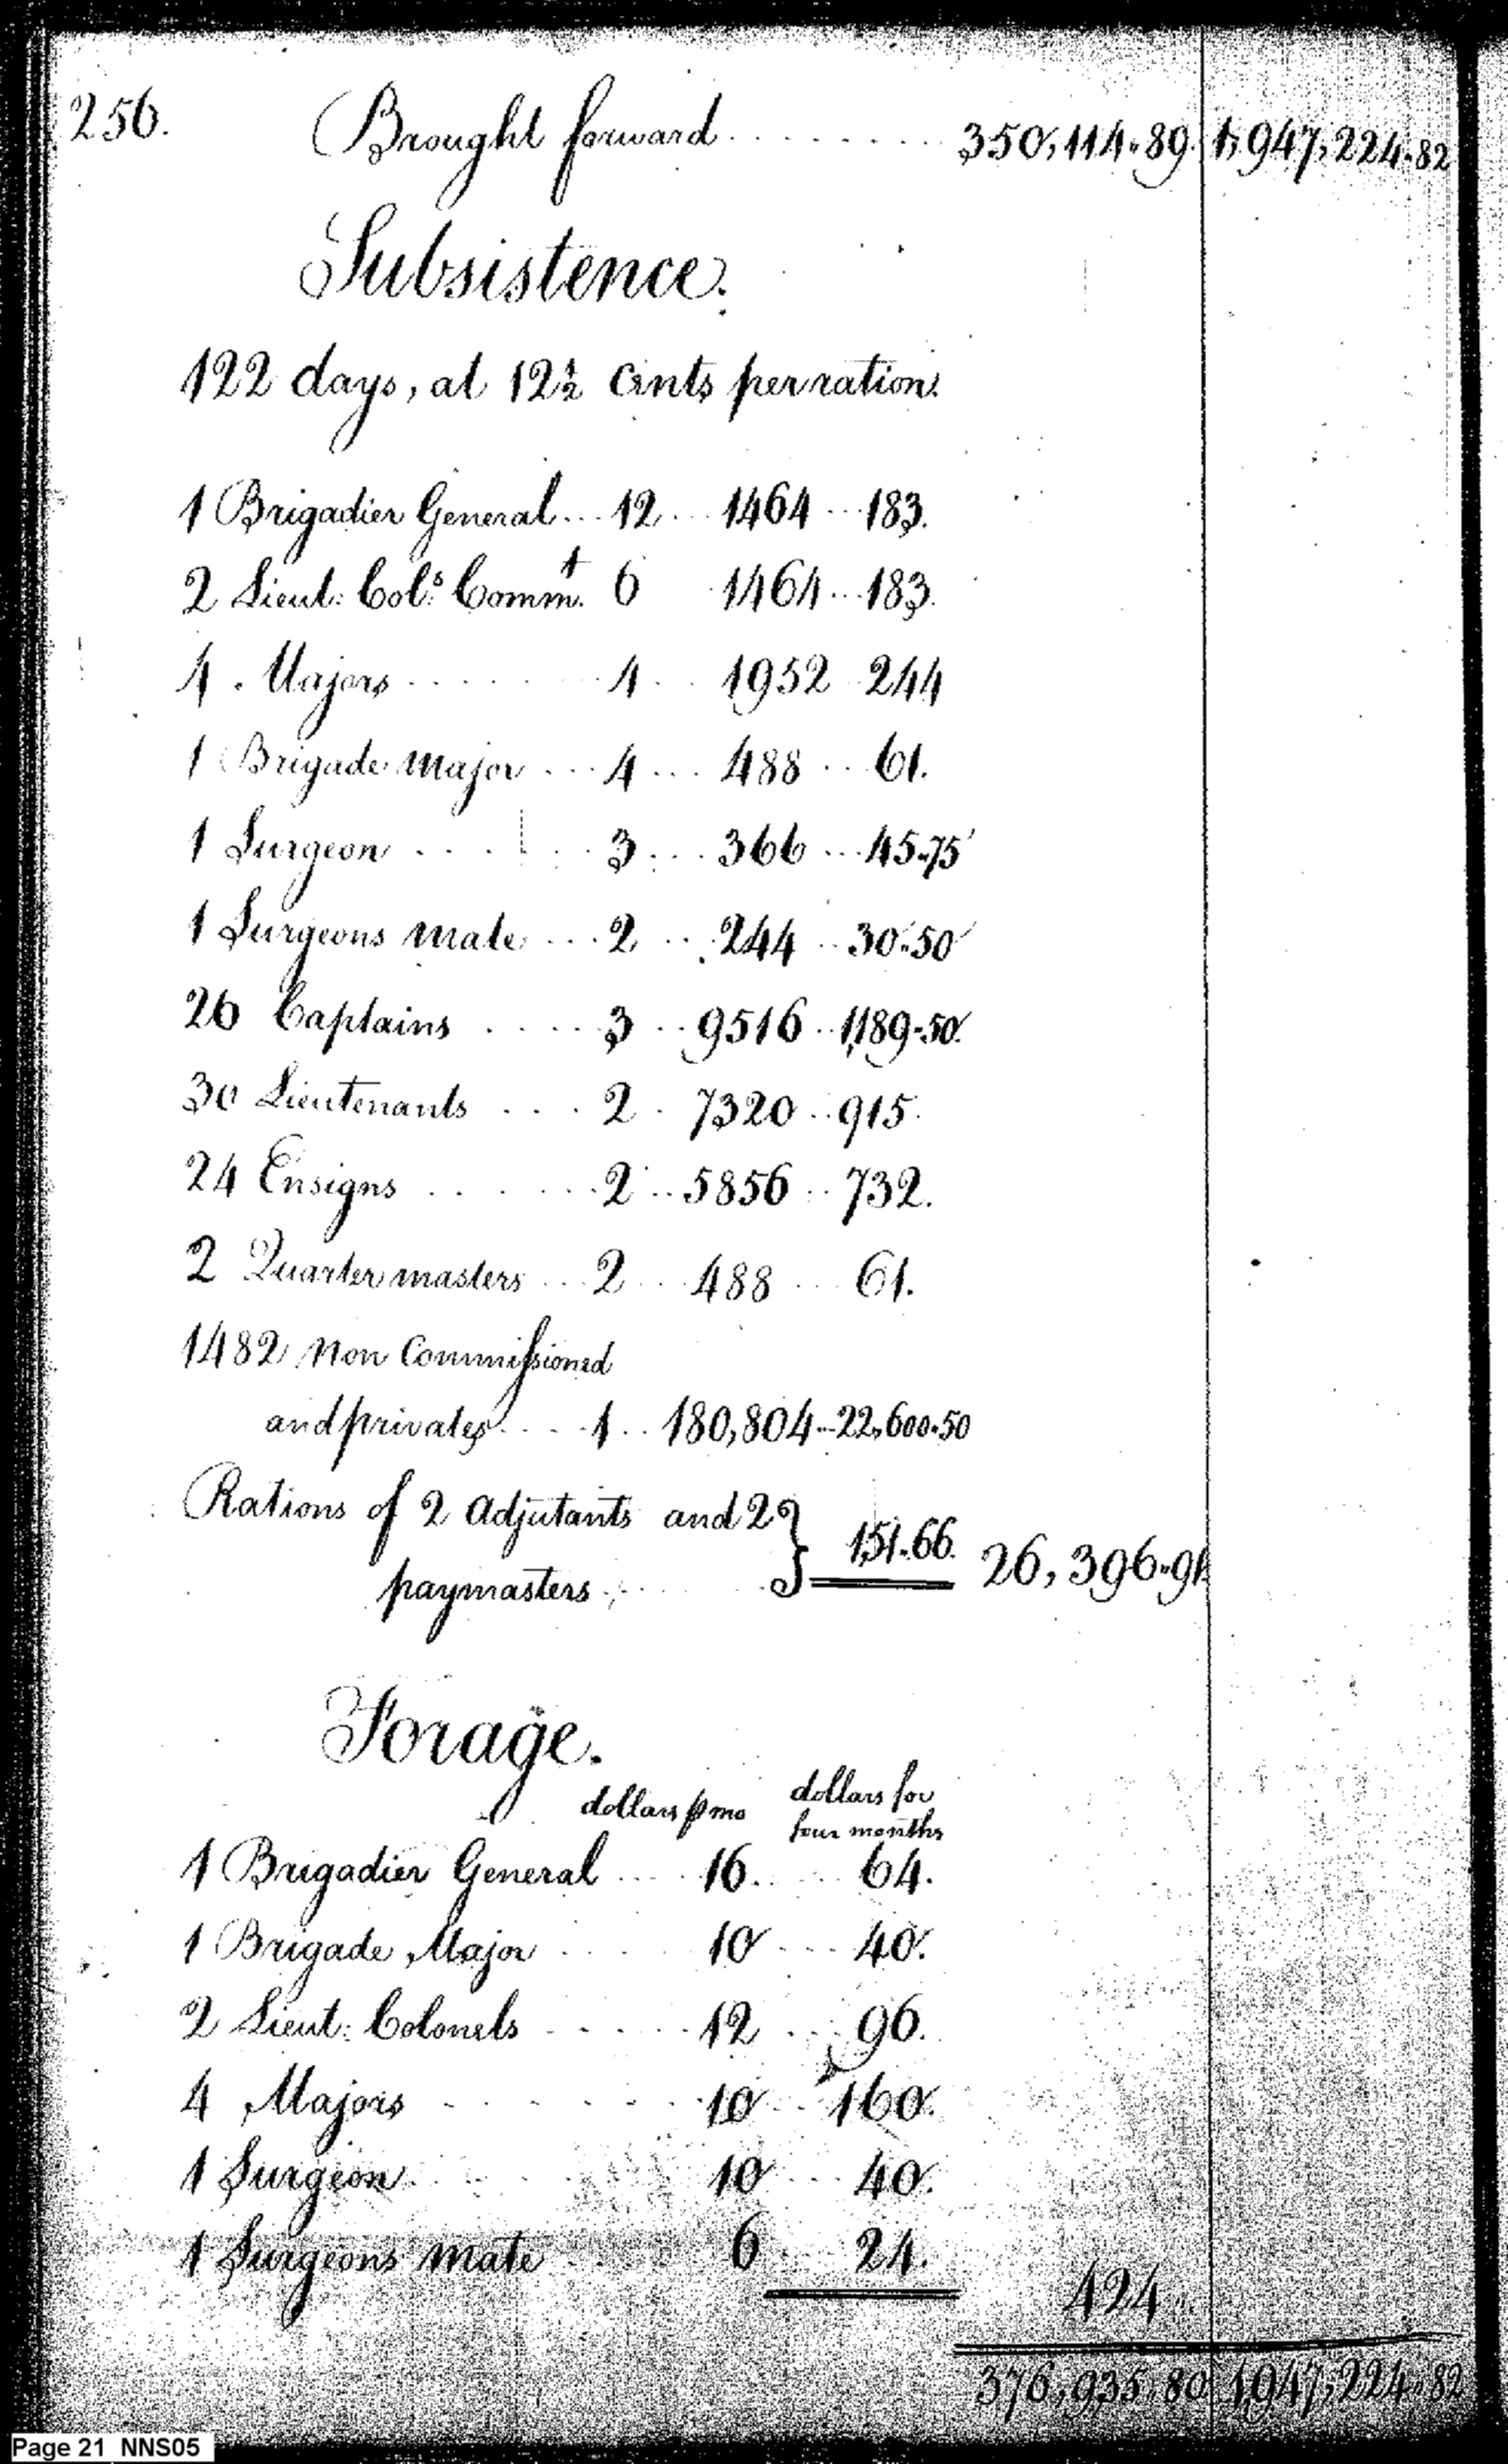 256.
Brought forward ........ 350,114.89. 1,947,224.82
Subsistence.
122 days, at 12½ Cents per ration.
1 Brigadier General... 12... 1464... 183.
2 Lieut: Cols. Commt. 6 1464... 183.
4 Majors ...... 4... 1952 244
1 Brigade Major ... 4... 488... 61.
1 Surgeon ..... 3... 366... 45.75
1 Surgeons Mate ... 2... 244.. 30.50
26 Captains ..... 3.. 9516.. 1,189.50.
30 Lieutenants .... 2. 7320.. 915.
24 Ensigns ...... 2.. 5856.. 732.
2 Quarter masters ... 2... 488... 61.
1482 Non Commissioned
and privates.... 1.. 180,804...22,600.50
Rations of 2 Adjutants and 2 } 151.66. 26,396.91
paymasters
Forage.
dollars p mo dollars for
four months
1 Brigadier General .... 16..... 64.
1 Brigade Major .... 10.... 40.
2 Lieut: Colonels ..... 12... 96.
4 Majors ...... 10... 160.
1 Surgeon .... 10... 40.
1 Surgeons Mate ... 6... 24.
424..
376,935.80 1,947,224.82
Page 21 NNS05